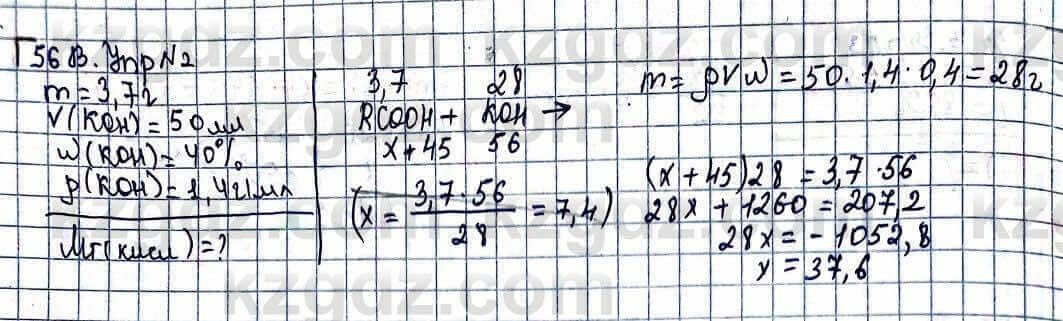 §56 В. Упр N2
m = 3,7г
V(KOH) = 50мл
w(KOH) = 40%
ρ(KOH) = 1,4г/мл
Mr(кисл) = ?
3,7 28
RCOOH + KOH →
x + 45 56
(x = 3,7 · 56 / 28 = 7,4)
m = ρVw = 50 · 1,4 · 0,4 = 28г
(x + 45)28 = 3,7 · 56
28x + 1260 = 207,2
28x = - 1052,8
x = 37,6
kzgdz.com